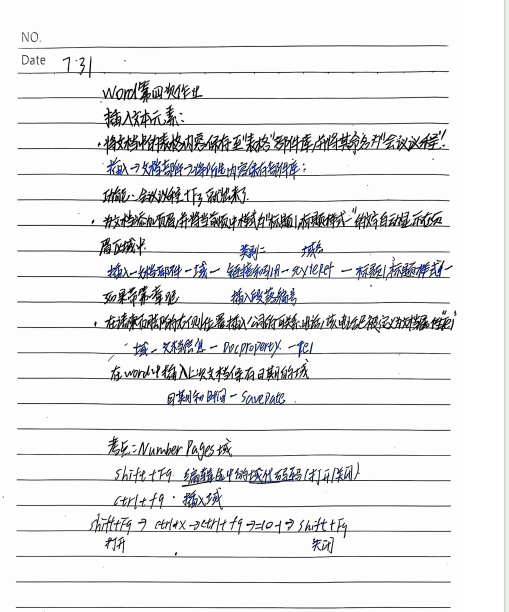 NO.
Date 7.31
Word第四次作业
插入文本元素:
·将文档中的表格内容保存至"表格"部件库,并将其命名为"会议议程".
插入→文档部件→将所选内容保存到部件库:
功能:会议议程 下了就出来了.
·为文档添加页眉,并将当前页中样式为"标题1,标题样式一"的文字自动显示在页
眉区域中.
类别: 域名
插入—文档部件—域—链接和引用—styleref—标题1,标题样式一
如果带章吧 插入段落编号
·在 右侧位置插入公司的联系电话,该电话已被定义为文档属性"tel"
域—文档信息—Docproperty—tel
在word中插入上次文档保存日期的域
日期和时间—SaveDate.
考点:Number Pages域
Shift+F9 编辑选中的域代码(打开/关闭)
ctrl+f9·插入域
shift+F9→ctrl+x→ctrl+f9→=10-1→shift+F9
打开 关闭